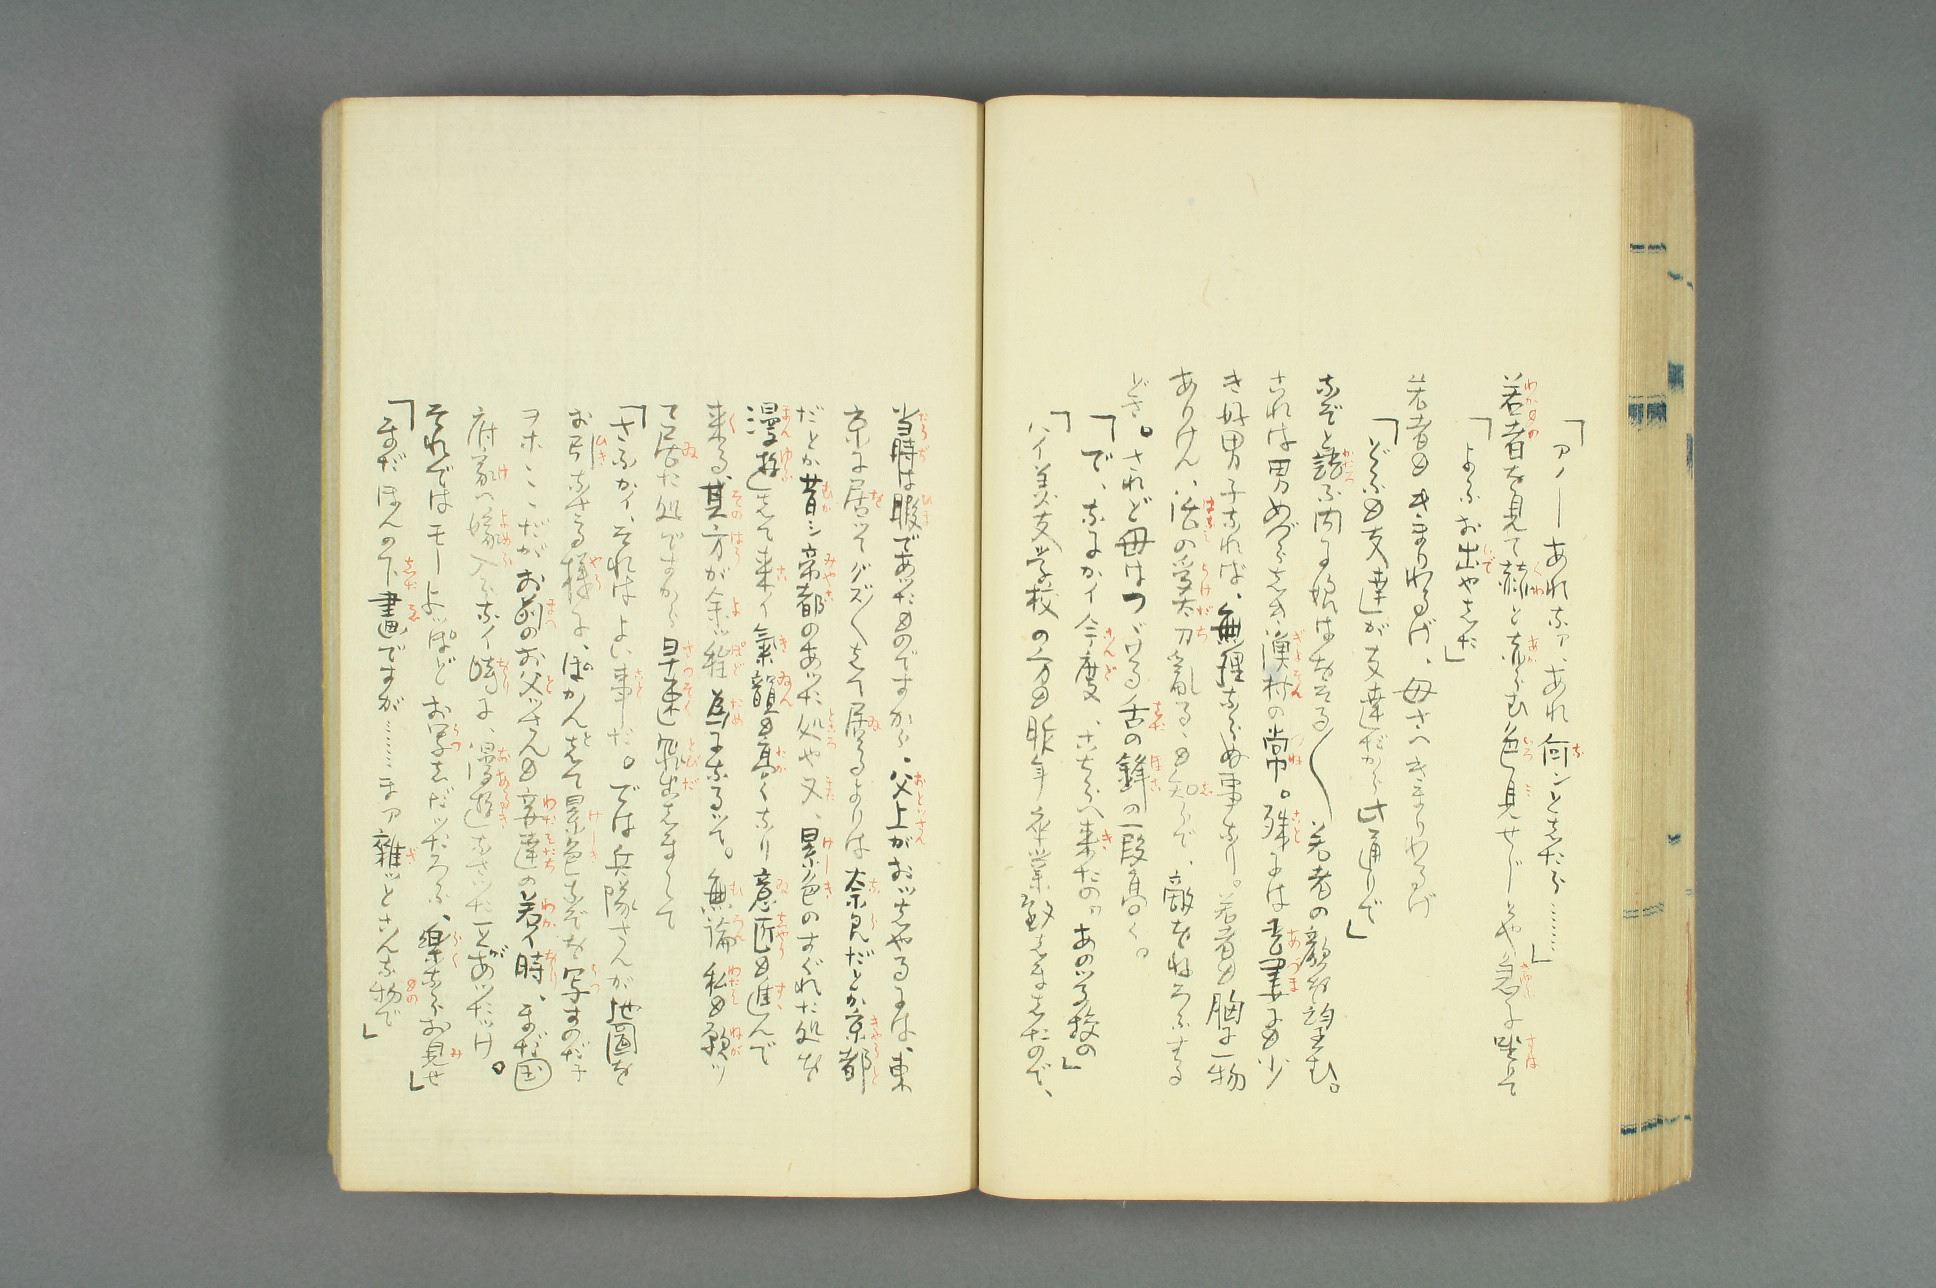 「アノーあれネア、あれ何ンとしたら……」
若者を見て赫と赤らむ色見せじとや急に坐して
「よふお出やした」
若者もきまりわるげ、母さへきまりわるげ
「どふも友達が友達だから此通りで」
などと語ふ内に娘はおそる〱若者の顔を望む。
これは男めづらしき漁村の常。殊には吾妻にも少
き好男子なれば、無理ならぬ事なり。若者も胸に一物
ありけん、話の受太刀乱るゝも知らで、敵をねらふする
どさ。されど母はつゞける舌の鋒の一段高く。
「で、なにかイ今度、こちらへ来たの。あの学校の」
「ハイ美友学校の方も昨年卒業致しましたので、
当時は暇であッたものですから、父上がおッしやるには、東
京に居ッてグズ〱して居るよりは奈良だとか京都
だとか昔シ帝都のあッた処や又、景色のすぐれた処を
漫遊して来イ気韻も高くなり意匠も進んで
来る、其方が余ッ程為になるッて。無論私も願ッ
て居た処ですから早速飛出しまして
「さふかイ、それはよい事だ。では兵隊さんが地図を
お引なさる様に、ぽかんとして景色などを写すのだ子
ヲホヽヽだがお前のお父ッさんも安達の若イ時、まだ国
府家へ嫁入らないに、漫遊なさッたことがあッたッけ。
それではモーよッぽどお写しだッたろふ、楽ならお見せ」
「まだほんの下書画ですが……まア雑ッとこんな物で」